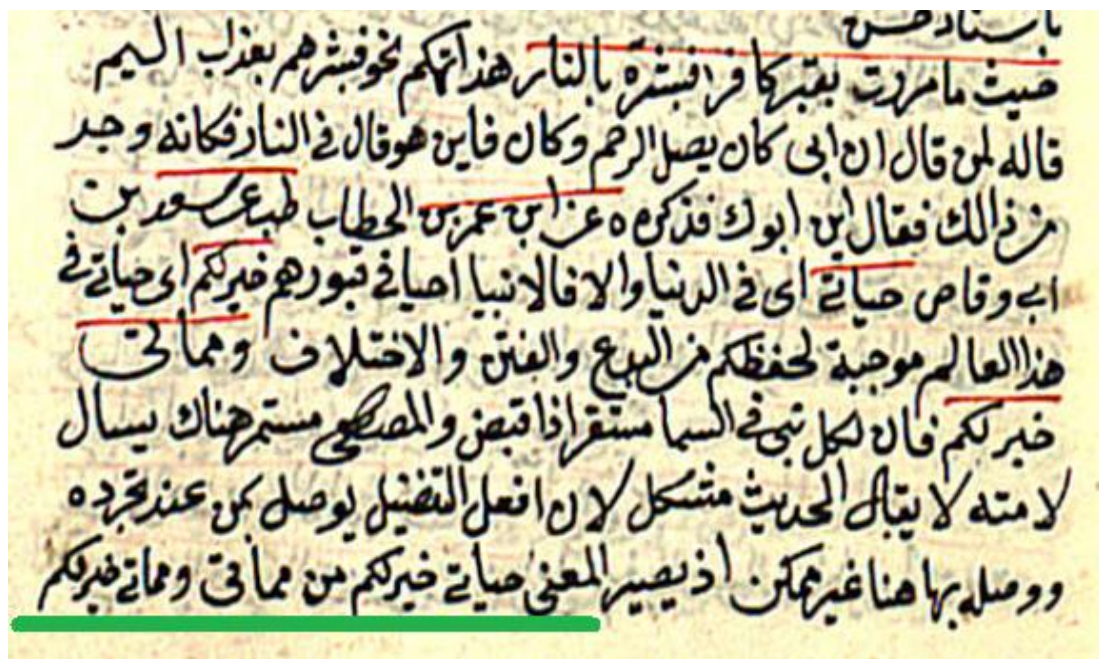 باسناد حسن
حيث ما مررت بقبر كافر فبشره بالنار هذا تهكم نحو فبشرهم بعذاب اليم
قاله لمن قال ان ابى كان يصل الرحم وكان فاين هو قال فى النار فكانه وجد
من ذالك فقال اين ابوك فذكره ه عن ابن عمر بن الخطاب طب عن سعد بن
ابى وقاص حياتى اى فى الدنيا والا فالانبيا احيا فى قبورهم خير لكم اى حياتى فى
هذا العالم موجبة لحفظكم من البدع والفتن والاختلاف ومماتى
خير لكم فان لكل نبى فى السما مستقر اذا قبض والمصطفى مستمر هناك يسال
لامته لا يقال الحديث مشكل لان افعل التفضيل يوصل بمن عند تجرده
ووصله بها هنا غير ممكن اذ يصير المعنى حياتى خير لكم من مماتى ومماتى خير لكم